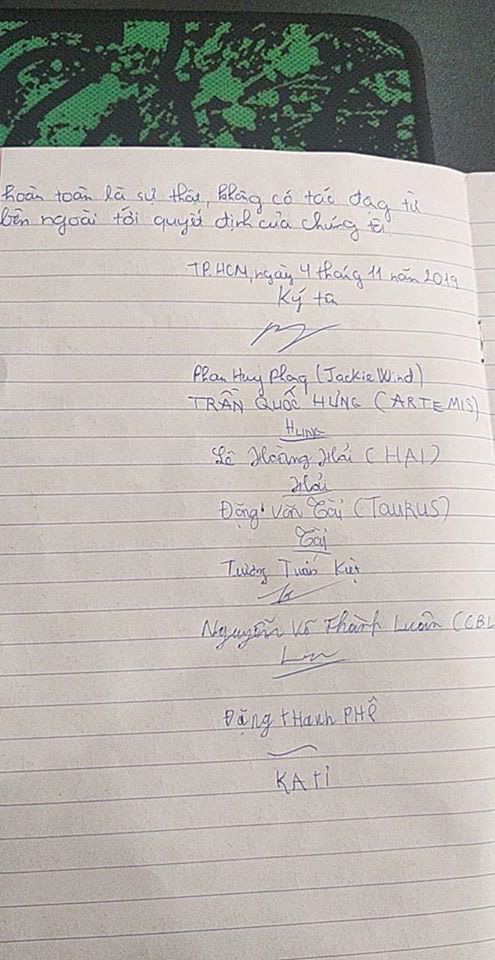 hoàn toàn là sự thật, không có tác động từ
bên ngoài tới quyết định của chúng tôi
TP.HCM, ngày 4 tháng 11 năm 2019
Ký tên
Phan Huy Phong (JackieWind)
TRẦN QUỐC HƯNG (ARTEMIS)
HUNG
Lê Hoàng Hải (HAI)
Hải
Đặng Văn Tài (TAURUS)
Tài
Tường Tuấn Kiệt
Nguyễn Võ Thành Luân (CBL
Đặng tHanh PHÊ
KAtI